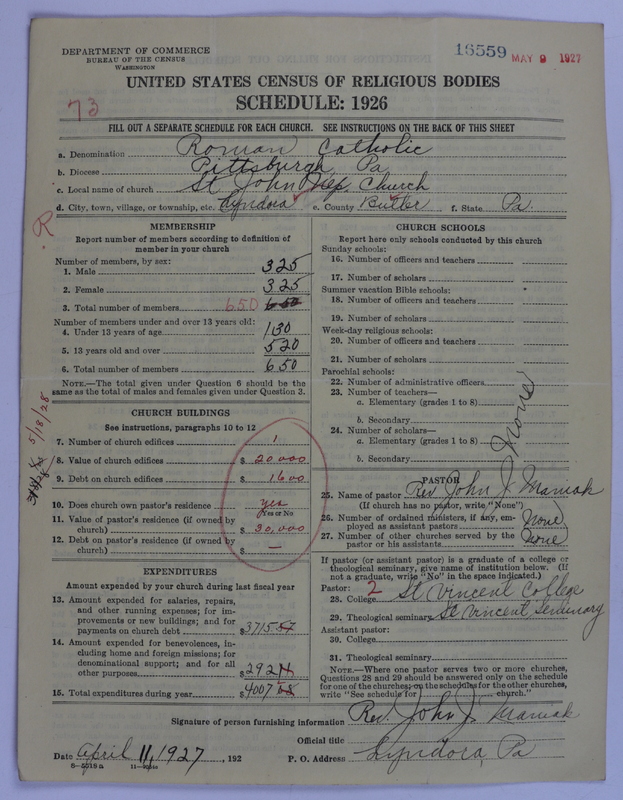 DEPARTMENT OF COMMERCE
BUREAU OF THE CENSUS
WASHINGTON
16559 MAY 9 1927
UNITED STATES CENSUS OF RELIGIOUS BODIES
SCHEDULE: 1926
73
FILL OUT A SEPARATE SCHEDULE FOR EACH CHURCH. SEE INSTRUCTIONS ON THE BACK OF THIS SHEET
a. Denomination Roman Catholic
b. Diocese Pittsburgh, Pa
c. Local name of church St John Nep. Church
d. City, town, village, or township, etc. Lyndora e. County Butler f. State Pa.
R
MEMBERSHIP
Report number of members according to definition of
member in your church
Number of members, by sex:
1. Male 325
2. Female 325
3. Total number of members 650 650
Number of members under and over 13 years old:
4. Under 13 years of age 130
5. 13 years old and over 520
6. Total number of members 650
NOTE.—The total given under Question 6 should be the
same as the total of males and females given under Question 3.
5/18/28
CHURCH BUILDINGS
See instructions, paragraphs 10 to 12
7. Number of church edifices 1
8. Value of church edifices $ 20000
9. Debt on church edifices $ 1600
10. Does church own pastor's residence yes
Yes or No
11. Value of pastor's residence (if owned by
church) $ 20,000
12. Debt on pastor's residence (if owned by
church) $ —
EXPENDITURES
Amount expended by your church during last fiscal year
13. Amount expended for salaries, repairs,
and other running expenses; for im-
provements or new buildings; and for
payments on church debt $ 3715.57
14. Amount expended for benevolences, in-
cluding home and foreign missions; for
denominational support; and for all
other purposes $ 292
15. Total expenditures during year $ 4007
CHURCH SCHOOLS
Report here only schools conducted by this church
Sunday schools:
16. Number of officers and teachers
17. Number of scholars
Summer vacation Bible schools:
18. Number of officers and teachers
19. Number of scholars
Week-day religious schools:
20. Number of officers and teachers
21. Number of scholars
Parochial schools:
22. Number of administrative officers
23. Number of teachers—
a. Elementary (grades 1 to 8)
b. Secondary
24. Number of scholars—
a. Elementary (grades 1 to 8)
b. Secondary
None
PASTOR
25. Name of pastor Rev John J. Maniak
(If church has no pastor, write "None")
26. Number of ordained ministers, if any, em-
ployed as assistant pastors None
27. Number of other churches served by the
pastor or his assistants None
If pastor (or assistant pastor) is a graduate of a college or
theological seminary, give name of institution below. (If
not a graduate, write "No" in the space indicated.)
Pastor:
28. College 2 St Vincent College
29. Theological seminary St Vincent Seminary
Assistant pastor:
30. College
31. Theological seminary
NOTE.—Where one pastor serves two or more churches,
Questions 28 and 29 should be answered only on the schedule
for one of the churches; on the schedules for the other churches,
write "See schedule for church."
Signature of person furnishing information Rev. John J. Maniak
Official title
Date April 11, 1927, 192 P. O. Address Lyndora, Pa